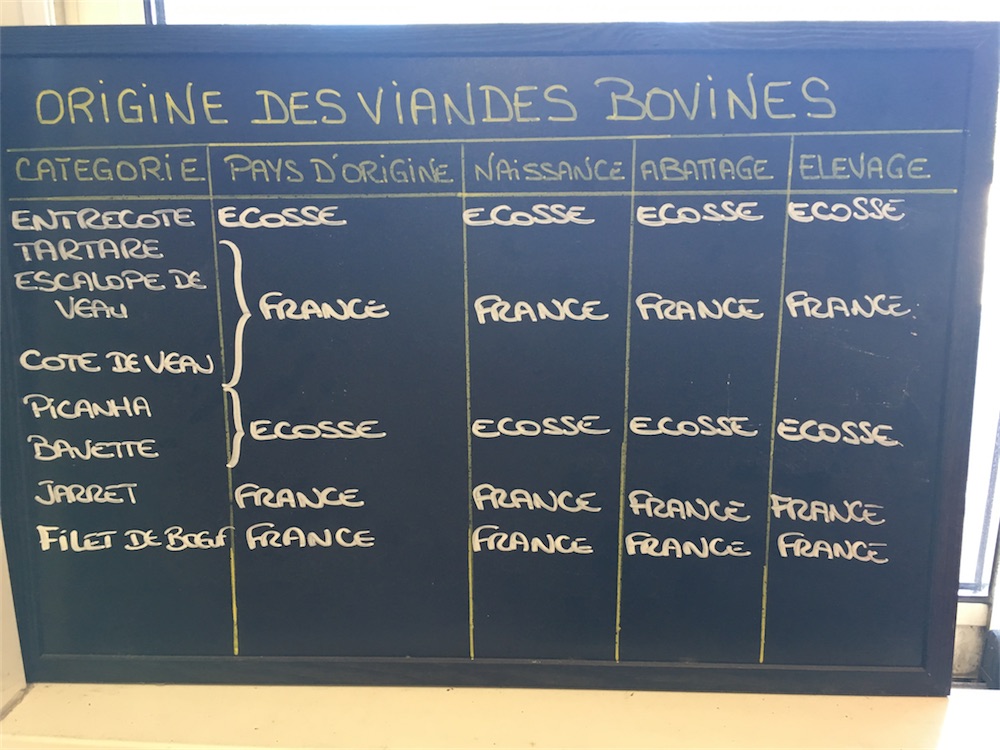 ORIGINE DES VIANDES BOVINES
CATEGORIE PAYS D'ORIGINE NAISSANCE ABATTAGE ELEVAGE
ENTRECOTE ECOSSE ECOSSE ECOSSE ECOSSE
TARTARE
ESCALOPE DE
VEAU FRANCE FRANCE FRANCE FRANCE
COTE DE VEAU
PICANHA
ECOSSE ECOSSE ECOSSE ECOSSE
BAVETTE
JARRET FRANCE FRANCE FRANCE FRANCE
FILET DE BŒUF FRANCE FRANCE FRANCE FRANCE